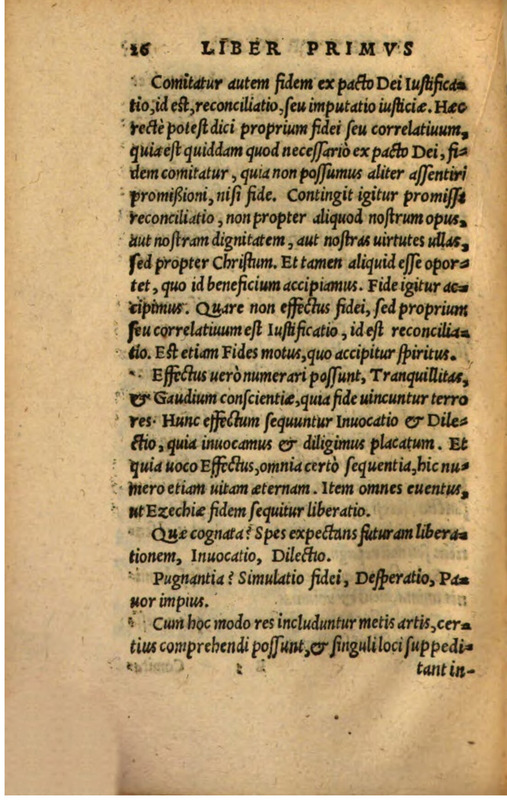 26 LIBER PRIMVS
Comitatur autem fidem ex pacto Dei Iustifica-
tio, id est, reconciliatio, seu imputatio iusticiæ. Hæc
rectè potest dici proprium fidei seu correlatiuum,
quia est quiddam quod necessariò ex pacto Dei, fi-
dem comitatur, quia non possumus aliter assentiri
promißioni, nisi fide. Contingit igitur promissa
reconciliatio, non propter aliquod nostrum opus,
aut nostram dignitatem, aut nostras uirtutes ullas,
sed propter Christum. Et tamen aliquid esse opor-
tet, quo id beneficium accipiamus. Fide igitur ac-
cipimus. Quare non effectus fidei, sed proprium
seu correlatiuum est Iustificatio, id est reconcilia-
tio. Est etiam Fides motus, quo accipitur spiritus.
Effectus uerò numerari possunt, Tranquillitas,
& Gaudium conscientiæ, quia fide uincuntur terro
res. Hunc effectum sequuntur Inuocatio & Dile-
ctio, quia inuocamus & diligimus placatum. Et
quia uoco Effectus, omnia certò sequentia, hic nu-
mero etiam uitam æternam. Item omnes euentus,
ut Ezechiæ fidem sequitur liberatio.
Quæ cognata? Spes expectans futuram libera-
tionem, Inuocatio, Dilectio.
Pugnantia? Simulatio fidei, Desperatio, Pa-
uor impius.
Cum hoc modo res includuntur metis artis, cer-
tius comprehendi possunt, & singuli loci suppedi-
tant in-